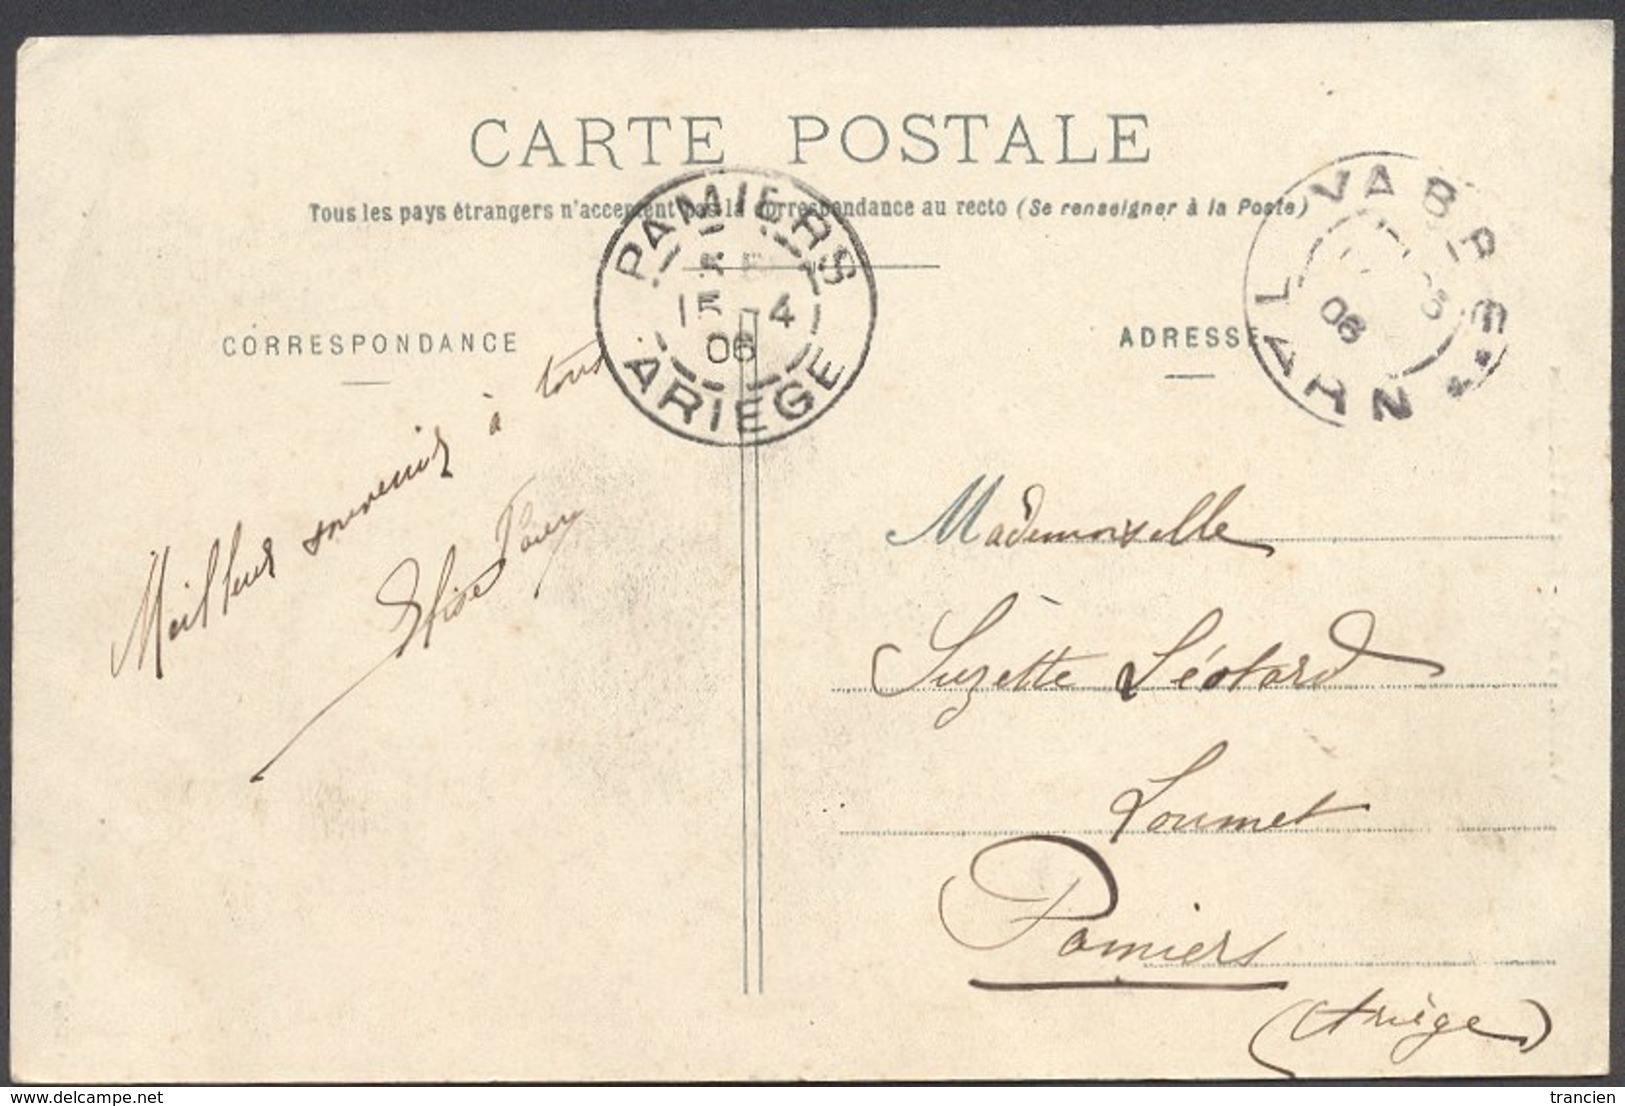 CARTE POSTALE
Tous les pays étrangers n'acceptent pas la correspondance au recto (Se renseigner à la Poste)
PAMIERS
15 -4
06
ARIEGE
VABRE
06
TARN
CORRESPONDANCE
ADRESSE
Meilleurs souvenirs à tous
Mademoiselle
Suzette Léotard
Loumet
Pamiers
(Ariège)
delcampe.net
trancien